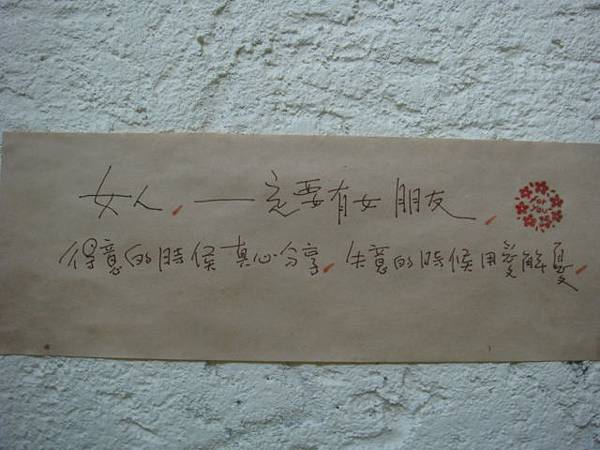 女人，一定要有女朋友，
得意的時候真心分享，失意的時候用愛解憂，
FOR YOU